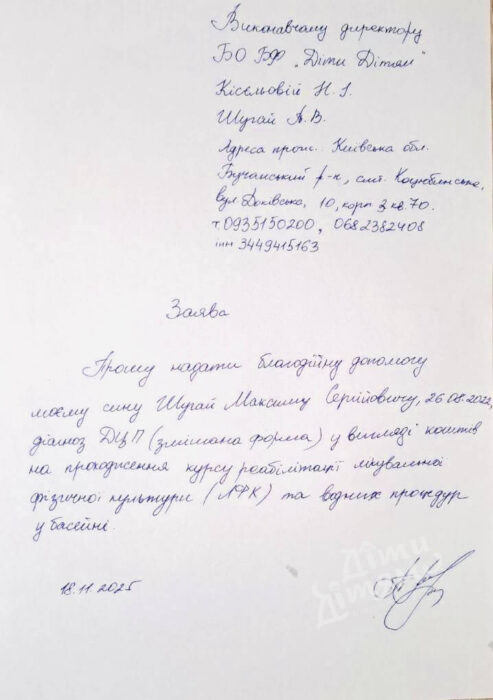 Виконавчому директору
БО БФ „Діти Дітям"
Кісєльовій Н. І.
Шугай А. В.
Адреса прож.: Київська обл.
Бучанський р-н, смт. Коцюбинське,
вул Доківська, 10, корп 3 кв 70.
т. 0935150200, 0682382408
інн 3449415163
Заява
Прошу надати благодійну допомогу
моєму сину Шугай Максиму Сергійовичу, 26.08.2022,
діагноз ДЦП (змішана форма) у вигляді коштів
на проходження курсу реабілітації лікувальної
фізичної культури (ЛФК) та водних процедур
у басейні.
Діти
Дітям
18.11.2025